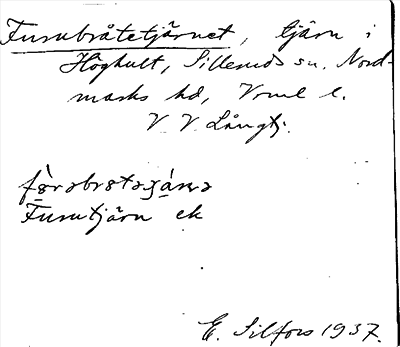 Furubråtetjärnet, tjärn i
Höghult, Silleruds sn. Nord-
marks hd, Vrml l.
V. V. Långtj.
Furutjärn ek
E. Silfors 1937.